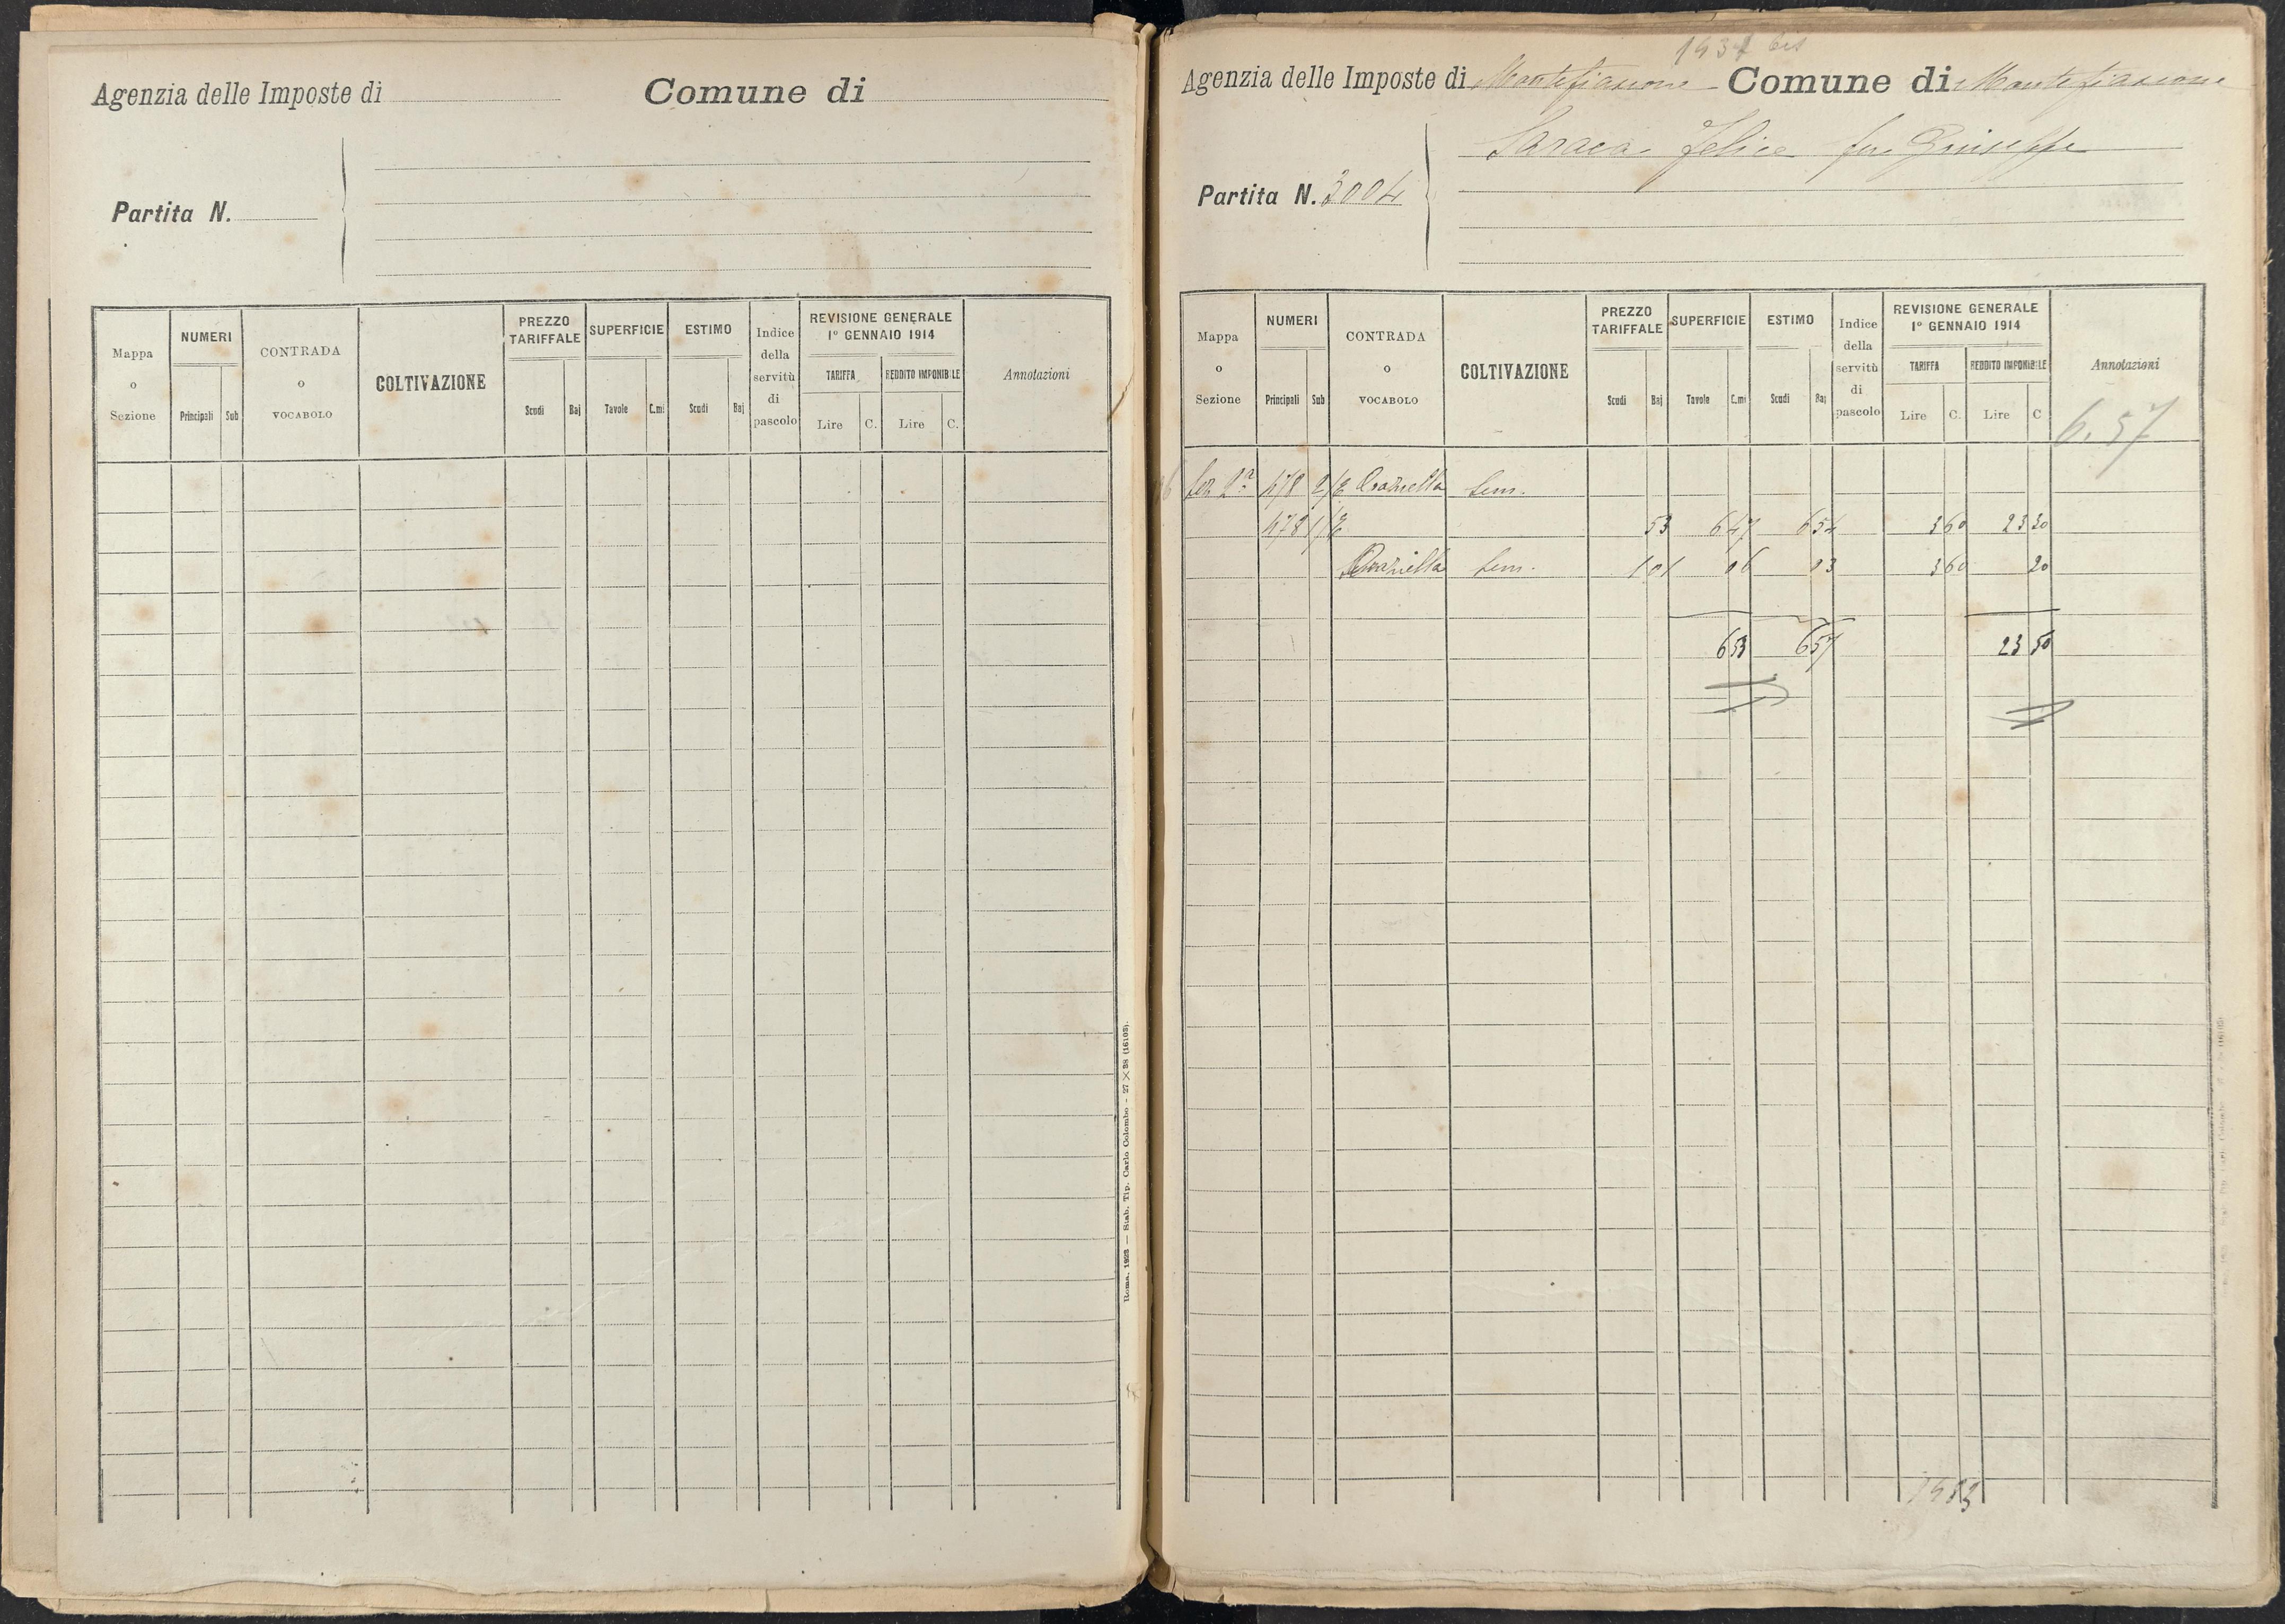 Agenzia delle Imposte di Comune di
Partita N.
Mappa o Sezione NUMERI Principali Sub CONTRADA o VOCABOLO COLTIVAZIONE PREZZO TARIFFALE Scudi Baj SUPERFICIE Tavole C.mi ESTIMO Scudi Baj Indice della servitù di pascolo REVISIONE GENERALE 1º GENNAIO 1914 TARIFFA Lire C. REDDITO IMPONIBILE Lire C. Annotazioni
Roma, 1923 — Stab. Tip. Carlo Colombo - 27 X 38 (16103).
193 bis
Agenzia delle Imposte di Montefiascone Comune di Montefiascone
Saraca Felice fu Giuseppe
Partita N. 3004
Mappa o Sezione NUMERI Principali Sub CONTRADA o VOCABOLO COLTIVAZIONE PREZZO TARIFFALE Scudi Baj SUPERFICIE Tavole C.mi ESTIMO Scudi Baj Indice della servitù di pascolo REVISIONE GENERALE 1º GENNAIO 1914 TARIFFA Lire C. REDDITO IMPONIBILE Lire C Annotazioni
6.57
478 2/2 Sem.
478 1/2 53 6 47 6 54 3 60 23 30
Sem. 1 01 06 03 3 60 20
6 53 6 57 23 50